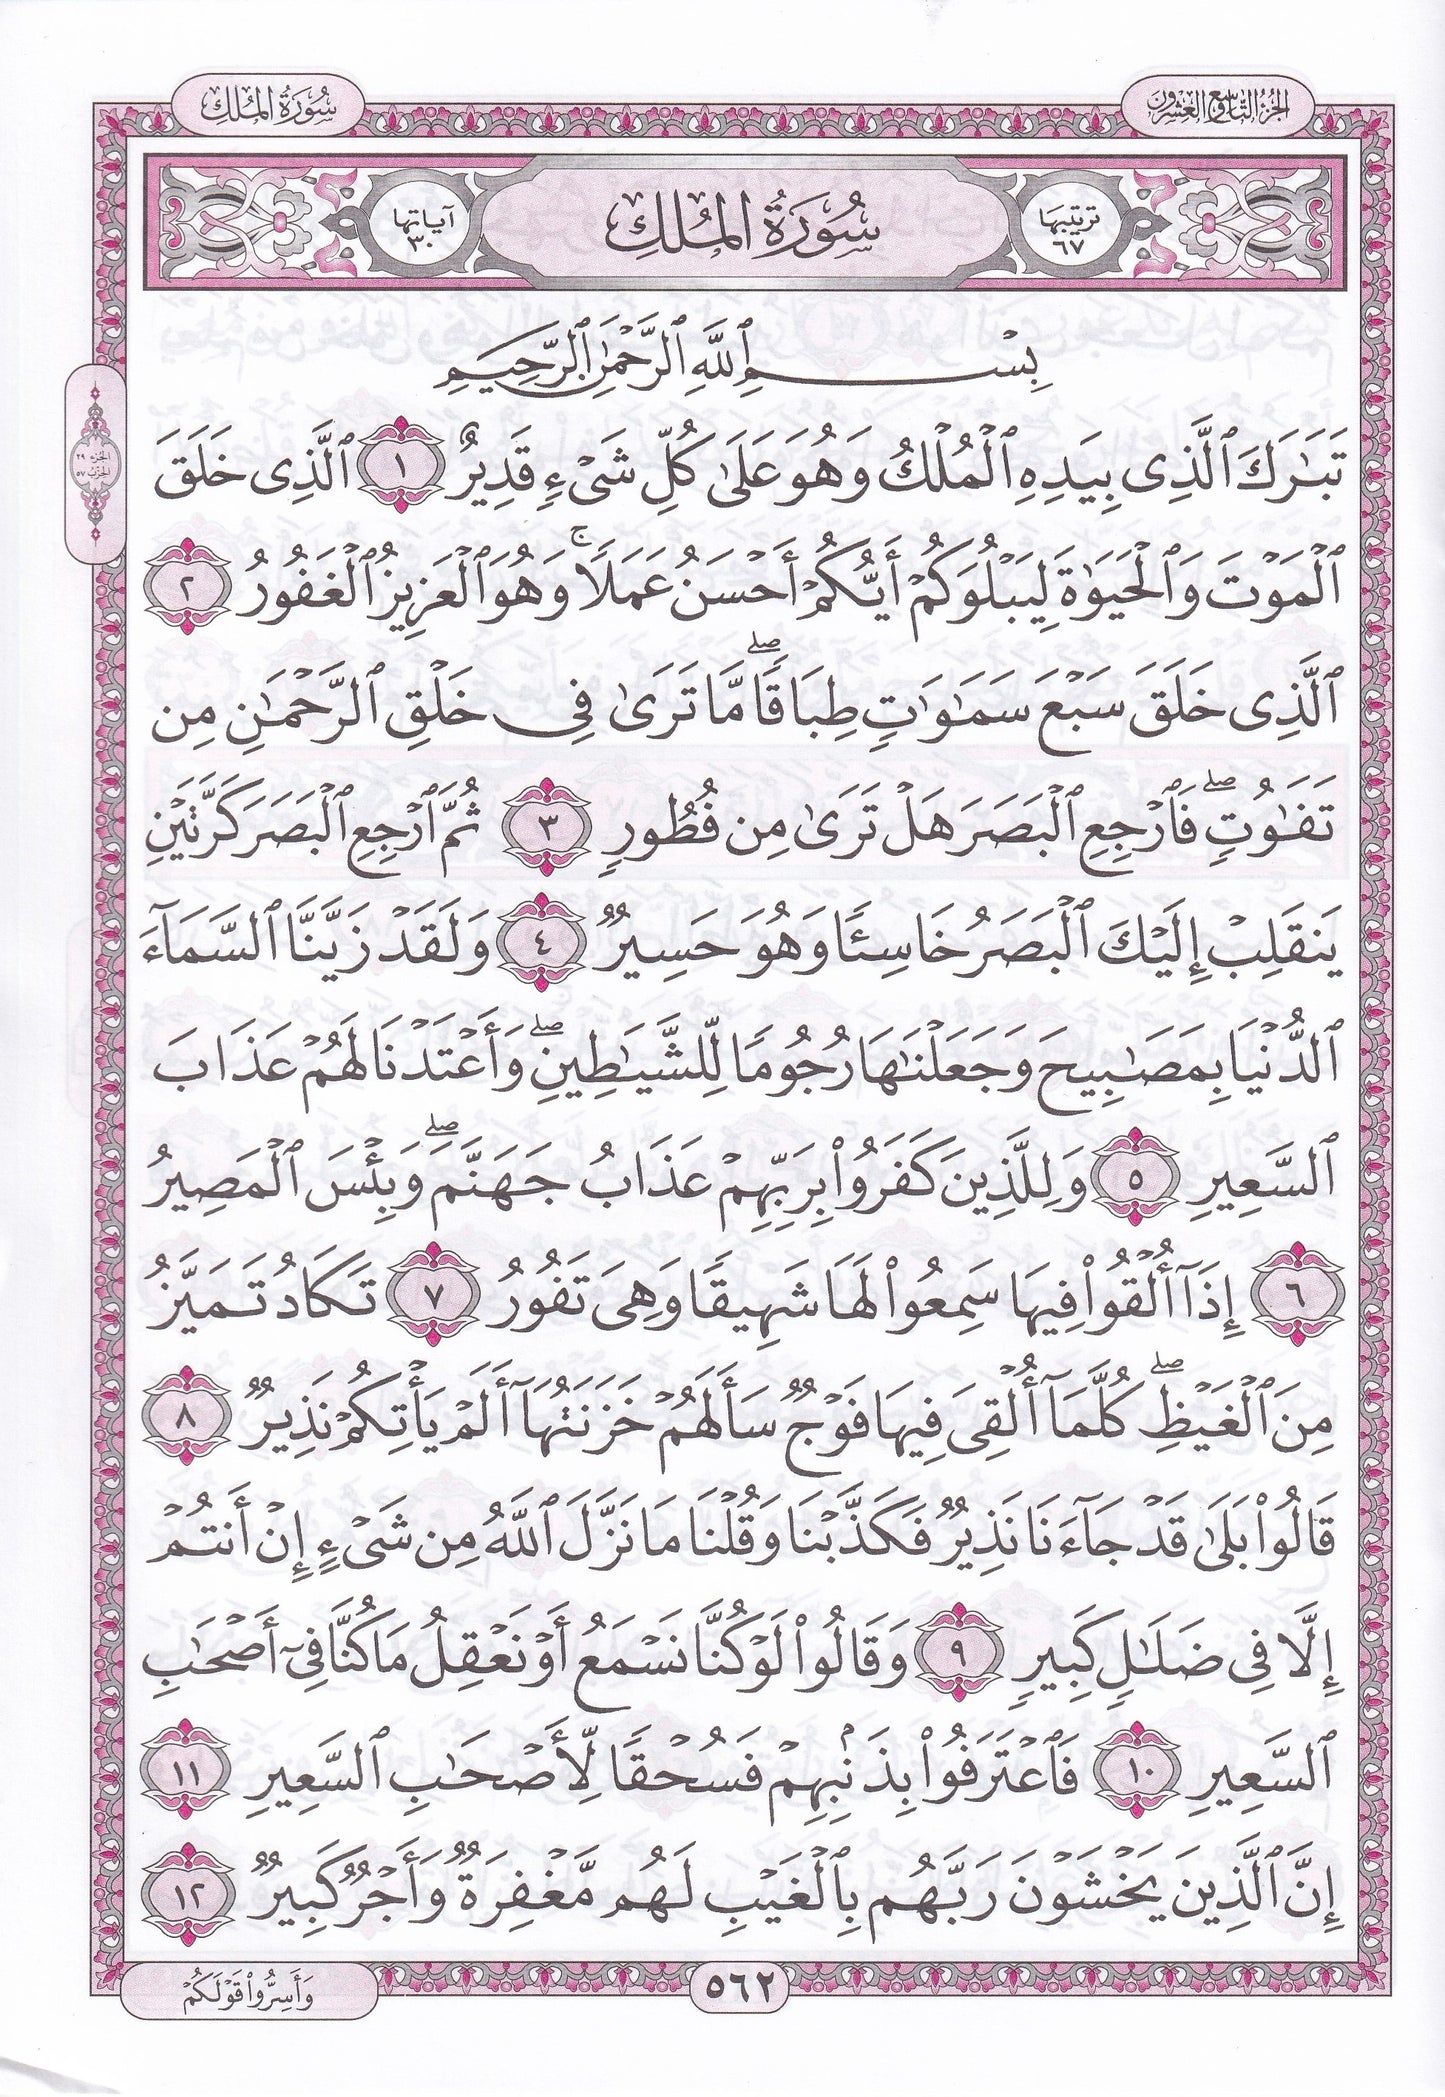 الجزء التاسع والعشرون
سُورَةُ الْمُلْكِ
ترتيبها ٦٧
سُورَةُ الْمُلْكِ
آياتها ٣٠
بِسْمِ ٱللَّهِ ٱلرَّحْمَٰنِ ٱلرَّحِيمِ
تَبَٰرَكَ ٱلَّذِى بِيَدِهِ ٱلْمُلْكُ وَهُوَ عَلَىٰ كُلِّ شَىْءٍ قَدِيرٌ ١ ٱلَّذِى خَلَقَ
ٱلْمَوْتَ وَٱلْحَيَوٰةَ لِيَبْلُوَكُمْ أَيُّكُمْ أَحْسَنُ عَمَلًا ۚ وَهُوَ ٱلْعَزِيزُ ٱلْغَفُورُ ٢
ٱلَّذِى خَلَقَ سَبْعَ سَمَٰوَٰتٍ طِبَاقًا ۖ مَّا تَرَىٰ فِى خَلْقِ ٱلرَّحْمَٰنِ مِن
تَفَٰوُتٍ ۖ فَٱرْجِعِ ٱلْبَصَرَ هَلْ تَرَىٰ مِن فُطُورٍ ٣ ثُمَّ ٱرْجِعِ ٱلْبَصَرَ كَرَّتَيْنِ
يَنقَلِبْ إِلَيْكَ ٱلْبَصَرُ خَاسِئًا وَهُوَ حَسِيرٌ ٤ وَلَقَدْ زَيَّنَّا ٱلسَّمَآءَ
ٱلدُّنْيَا بِمَصَٰبِيحَ وَجَعَلْنَٰهَا رُجُومًا لِّلشَّيَٰطِينِ ۖ وَأَعْتَدْنَا لَهُمْ عَذَابَ
ٱلسَّعِيرِ ٥ وَلِلَّذِينَ كَفَرُوا۟ بِرَبِّهِمْ عَذَابُ جَهَنَّمَ ۖ وَبِئْسَ ٱلْمَصِيرُ
٦ إِذَآ أُلْقُوا۟ فِيهَا سَمِعُوا۟ لَهَا شَهِيقًا وَهِىَ تَفُورُ ٧ تَكَادُ تَمَيَّزُ
مِنَ ٱلْغَيْظِ ۖ كُلَّمَآ أُلْقِىَ فِيهَا فَوْجٌ سَأَلَهُمْ خَزَنَتُهَآ أَلَمْ يَأْتِكُمْ نَذِيرٌ ٨
قَالُوا۟ بَلَىٰ قَدْ جَآءَنَا نَذِيرٌ فَكَذَّبْنَا وَقُلْنَا مَا نَزَّلَ ٱللَّهُ مِن شَىْءٍ إِنْ أَنتُمْ
إِلَّا فِى ضَلَٰلٍ كَبِيرٍ ٩ وَقَالُوا۟ لَوْ كُنَّا نَسْمَعُ أَوْ نَعْقِلُ مَا كُنَّا فِىٓ أَصْحَٰبِ
ٱلسَّعِيرِ ١٠ فَٱعْتَرَفُوا۟ بِذَنۢبِهِمْ فَسُحْقًا لِّأَصْحَٰبِ ٱلسَّعِيرِ ١١
إِنَّ ٱلَّذِينَ يَخْشَوْنَ رَبَّهُم بِٱلْغَيْبِ لَهُم مَّغْفِرَةٌ وَأَجْرٌ كَبِيرٌ ١٢
الجزء ٢٩
الحزب ٥٧
٥٦٢
وَأَسِرُّوا۟ قَوْلَكُمْ